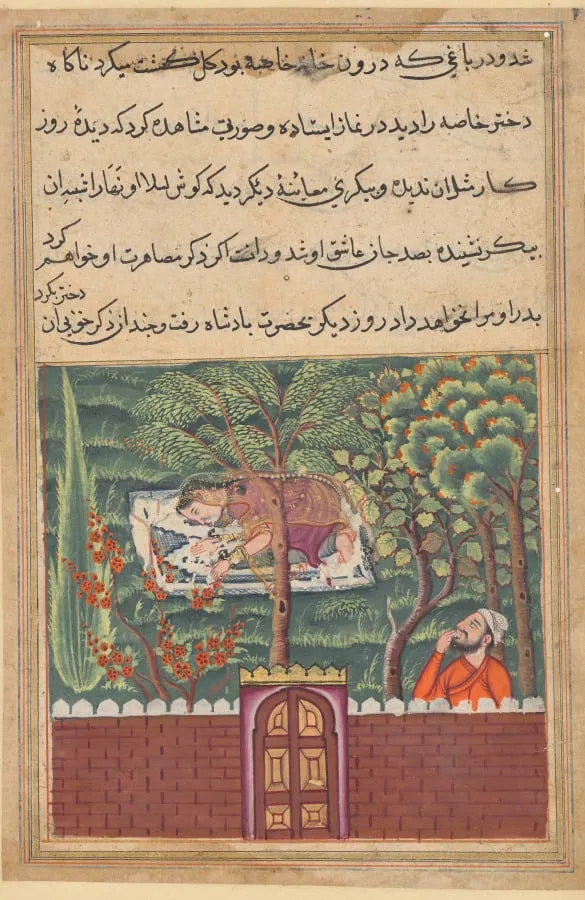 شد و در باغی که درون خانهٔ خاصه بود کل کشت میکرد ناکاه
دختر خاصه را دید در نماز ایستاده و صورتی مشاهده کرد که دیدهٔ روز
کار مثل ان ندیده و پیکری معاینهٔ دیکر دید که کوش لیلا او نهارا شبه ان
پیکر نشنیده بصد جان عاشق او شد و دانست اکر ذکر مصاهرت او خواهم کرد
پدر او مرا نخواهد داد روز دیکر بحضرت بادشاه رفت و چندان ذکر خوبی ان
دختر بکرد